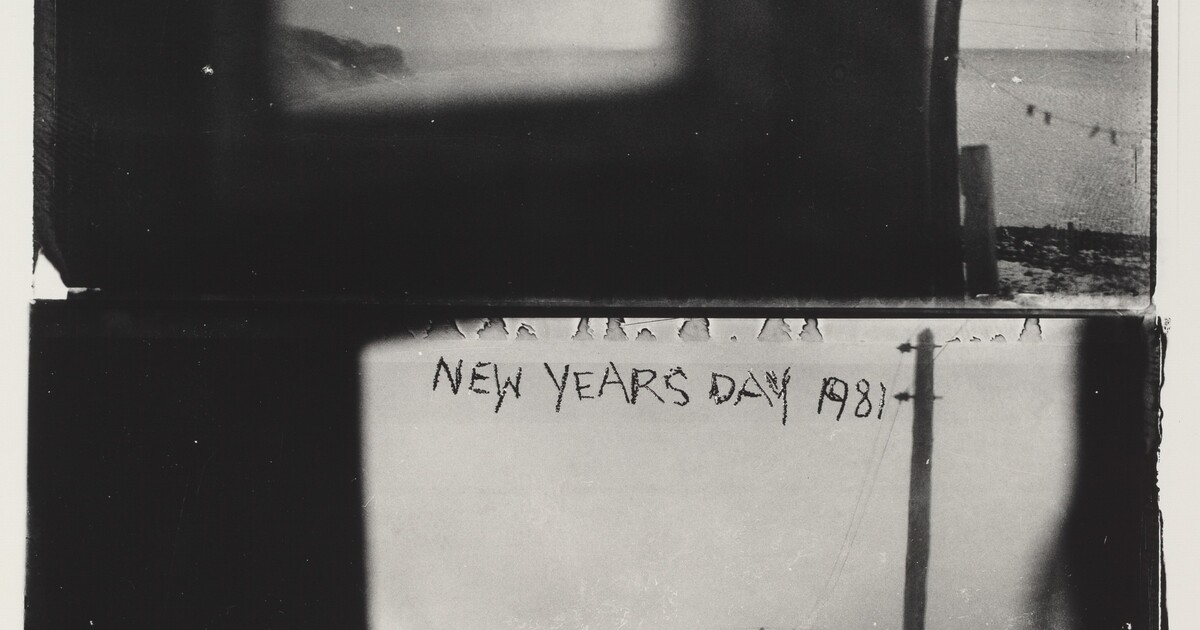 NEW YEARS DAY 1981